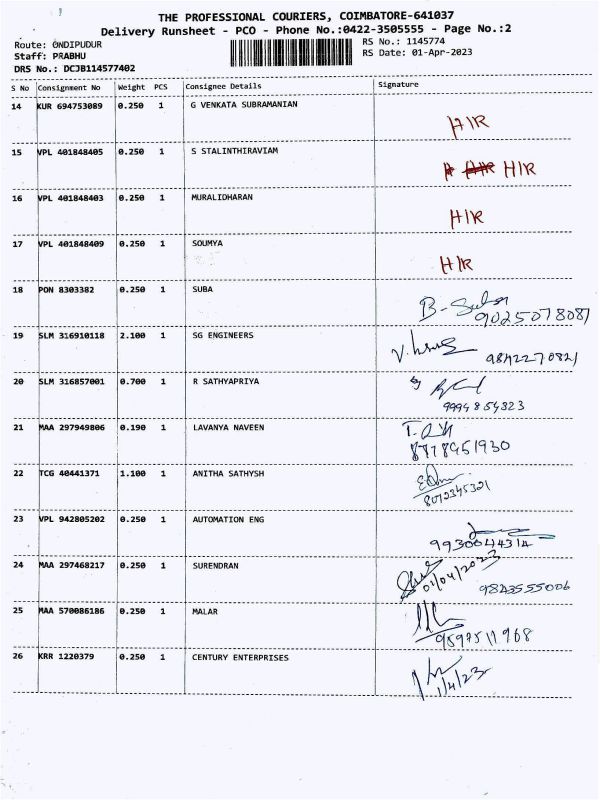 THE PROFESSIONAL COURIERS, COIMBATORE-641037
Delivery Runsheet - PCO - Phone No.:0422-3505555 - Page No.:2
Route: ONDIPUDUR
Staff: PRABHU
DRS No.: DCJB114577402
RS No.: 1145774
RS Date: 01-Apr-2023
S No Consignment No Weight PCS Consignee Details Signature
14 KUR 694753089 0.250 1 G VENKATA SUBRAMANIAN HIR
15 VPL 401848405 0.250 1 S STALINTHIRAVIAM HIR
16 VPL 401848403 0.250 1 MURALIDHARAN HIR
17 VPL 401848409 0.250 1 SOUMYA HIR
18 PON 8303382 0.250 1 SUBA B-Suba
9025078081
19 SLM 316910118 2.100 1 SG ENGINEERS
9842270821
20 SLM 316857001 0.700 1 R SATHYAPRIYA
9994854323
21 MAA 297949806 0.190 1 LAVANYA NAVEEN
8778951930
22 TCG 40441371 1.100 1 ANITHA SATHYSH
8072345321
23 VPL 942805202 0.250 1 AUTOMATION ENG
9930044314
24 MAA 297468217 0.250 1 SURENDRAN 01/04/2023
9843555006
25 MAA 570086186 0.250 1 MALAR
9597511968
26 KRR 1220379 0.250 1 CENTURY ENTERPRISES
1/4/23